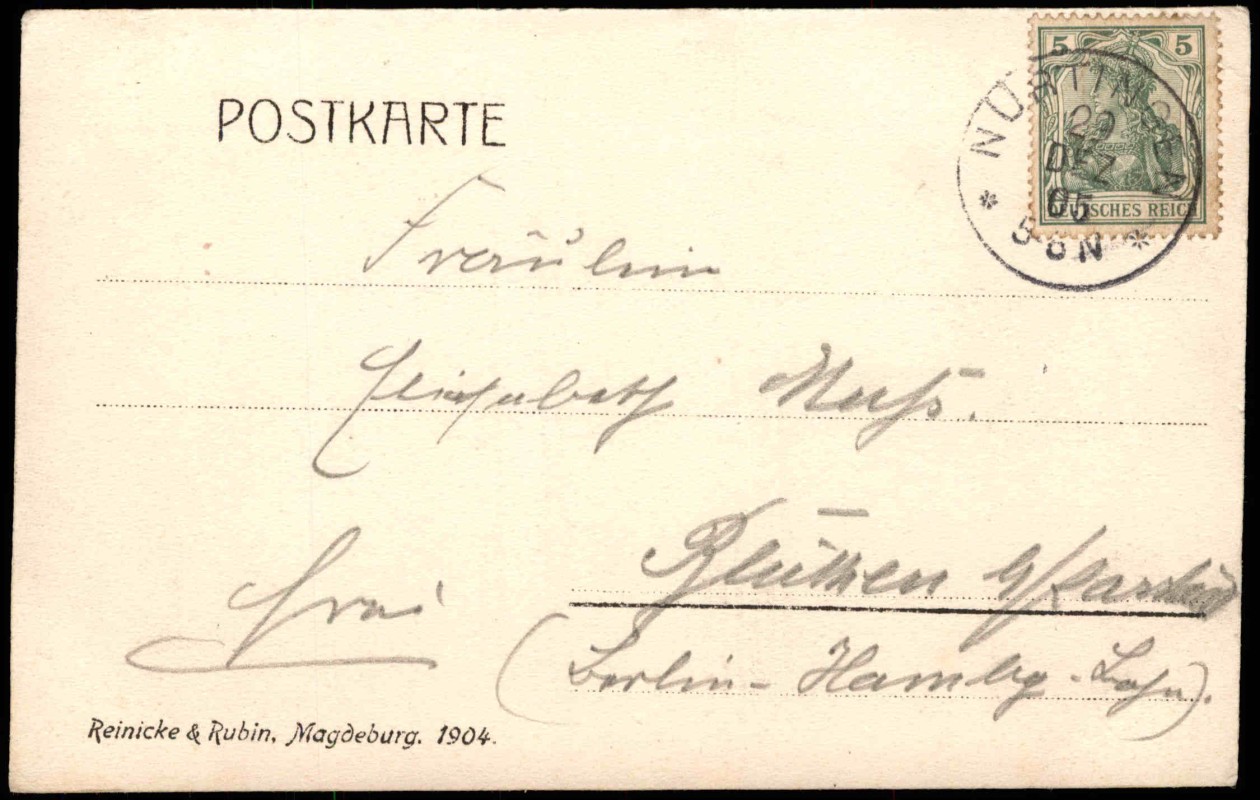 POSTKARTE
5 5
DEUTSCHES REICH
NÜRTINGEN
29
DEZ
05
5-6 N
Fräulein
Elisabeth
Blüthen b/Karstädt
Frei
(Berlin-Hambg-Bahn).
Reinicke & Rubin, Magdeburg. 1904.